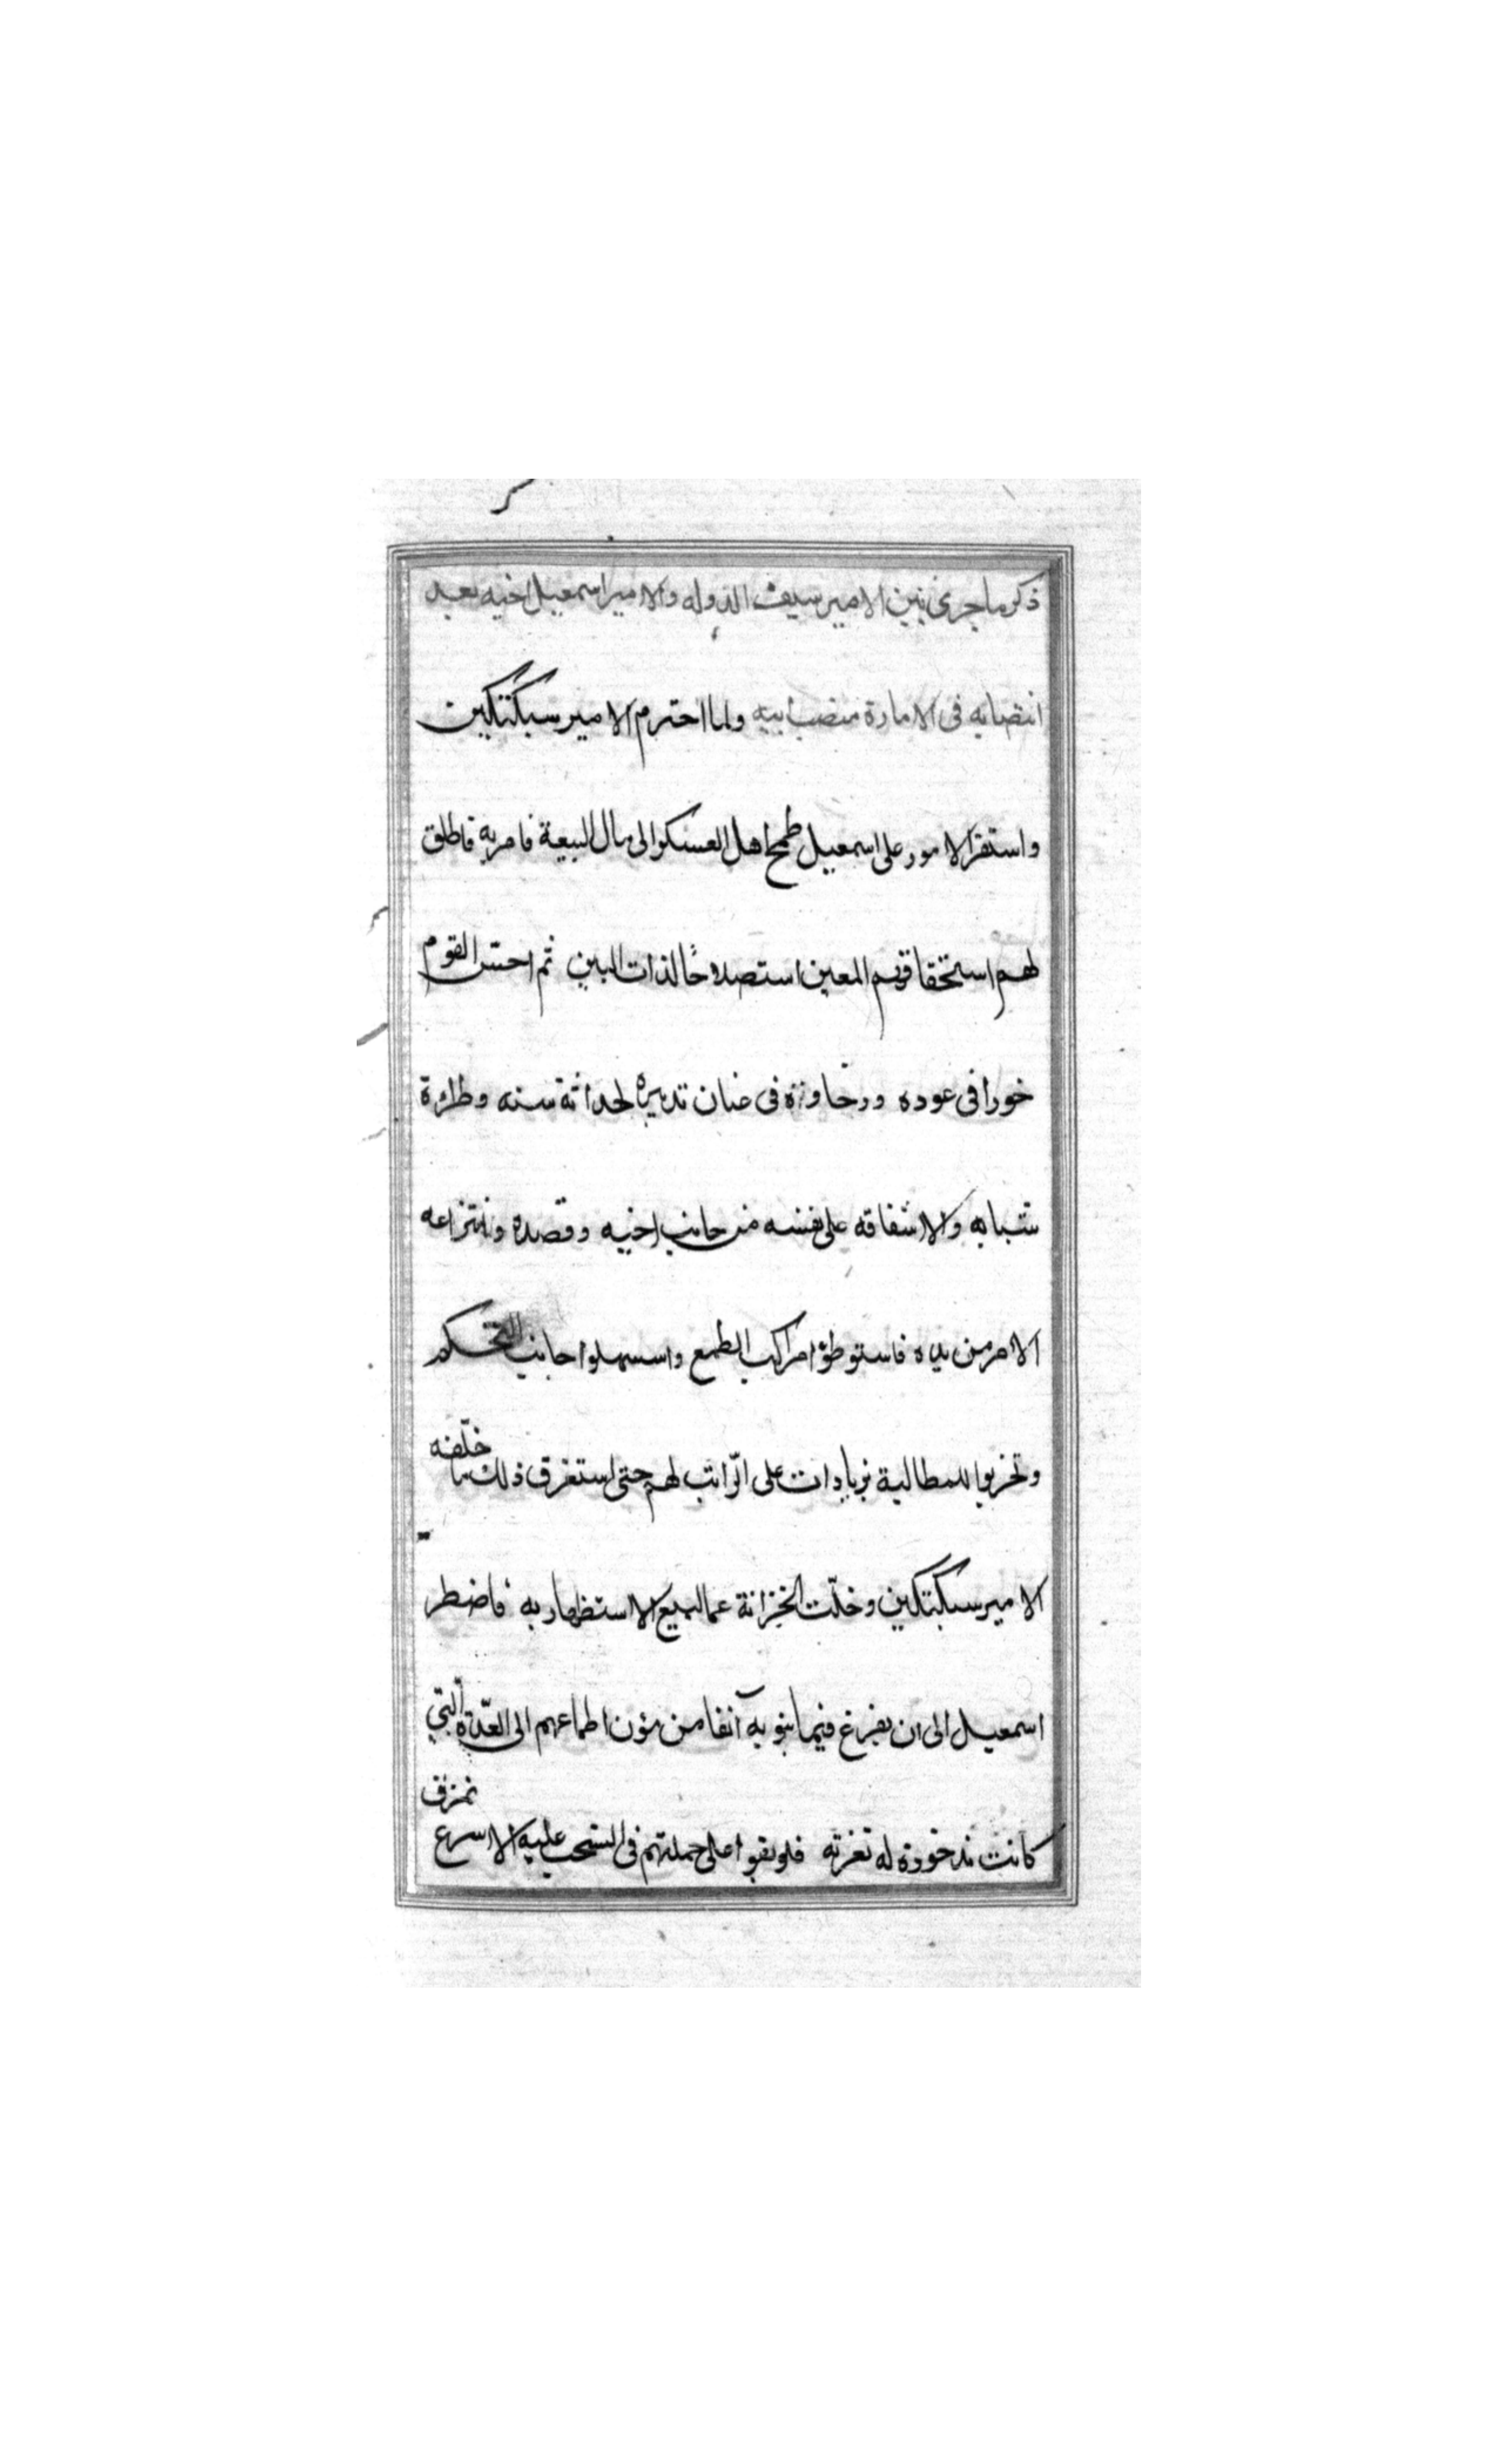 ذكر ما جرى بين الامير سيف الدوله والامير اسمعيل اخيه بعد
انتصابه فى الامارة منصب ابيه ولما احترم الامير سبكتكين
واستقر الامور على اسمعيل طمح اهل العسكر الى مال البيعة فامر به فاطلق
لهم استحقاقهم المعين استصلاحا لذات البين ثم احتس القوم
خورا فى عوده ورخاوة فى عنان تدبيره لحداثة سنه وطراوة
شبابه والاشفاقه على نفسه من جانب اخيه وقصده وانتزاعه
الامر من يده فاستوطؤا مراكب الطمع واسسهلوا جانب التحكم
وتحزبوا للمطالبة بزيادات على الرّاتب لهم حتى استغرق ذلك ما خلّفه
الامير سبكتكين وخلّت الخزانة عما لسع الاستظهار به فاضطر
اسمعيل الى ان يفزغ فيما ينوبه آنفا من مؤن اطماعهم الى العدّة الّتي
كانت مدخورة له بغزنه فلو بقوا على جملتهم فى التسحب عليه لاسرع
تمزق